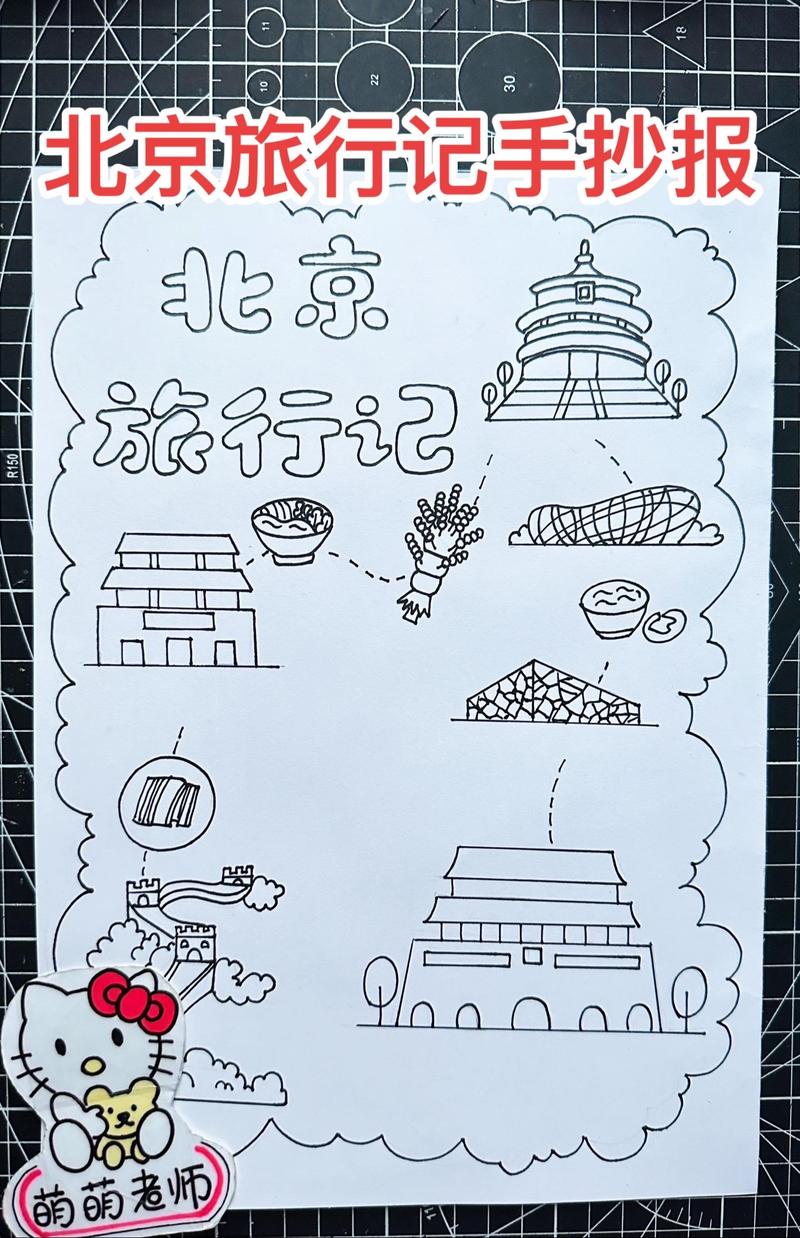 11
10
22
30
18
北京旅行记手抄报
北京
旅行记
R150
萌萌老师